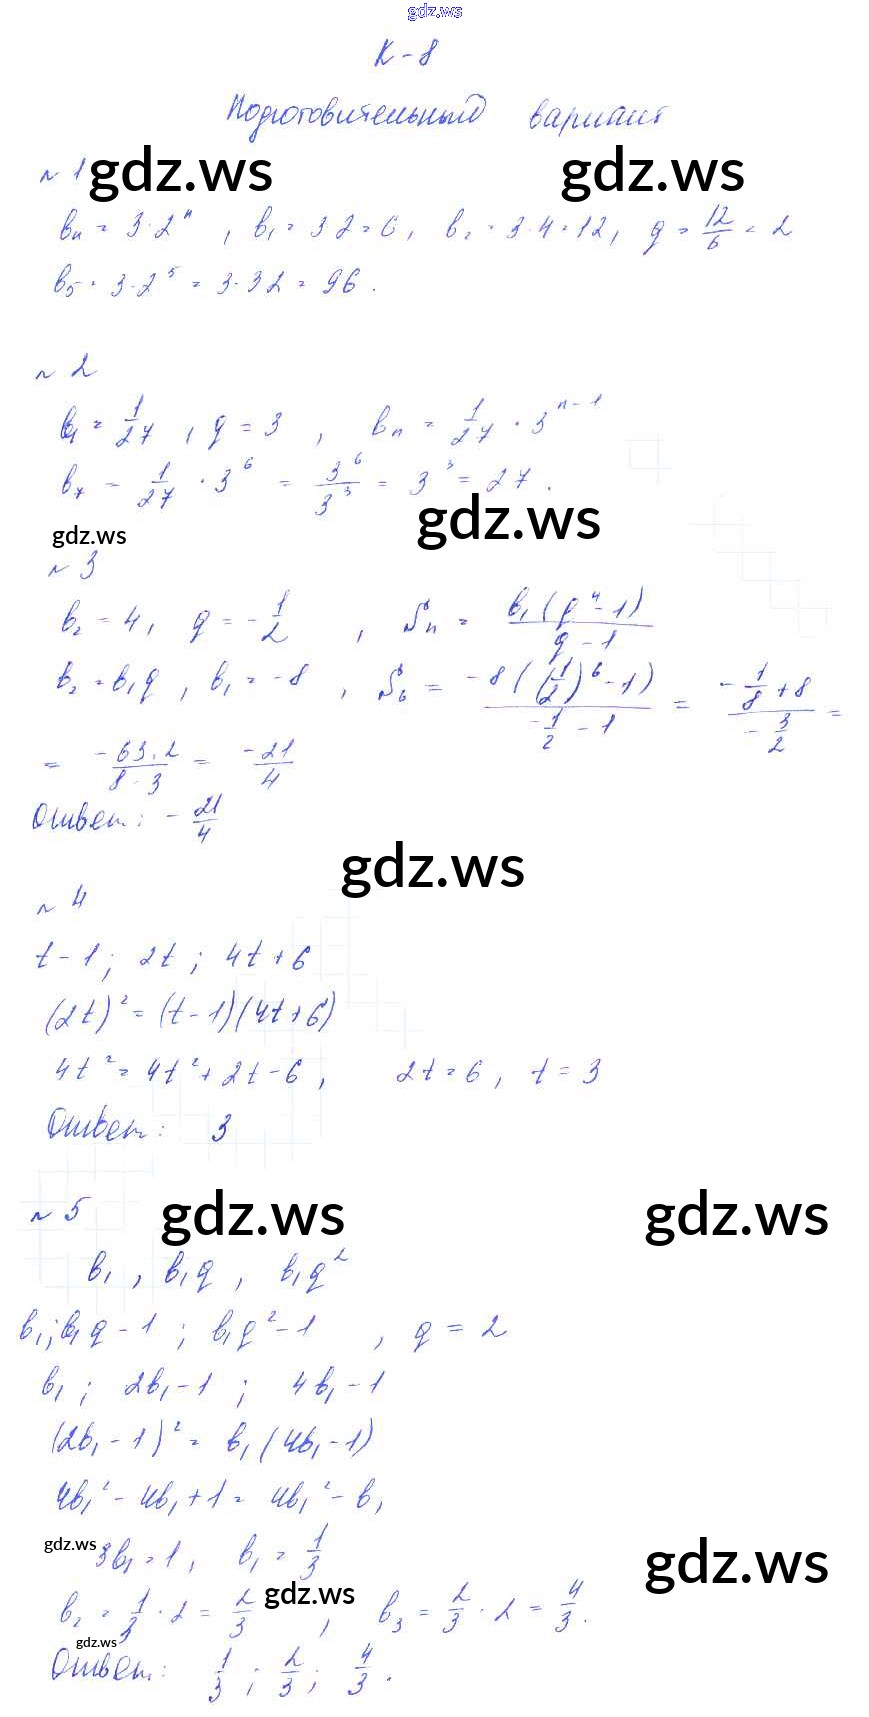 gdz.ws
К-8
Подготовительный вариант
№ 1 gdz.ws gdz.ws
bₙ = 3·2ⁿ , b₁ = 3 2 = 6, b₂ = 3·4 = 12, q = 12/6 = 2
b₅ = 3·2⁵ = 3·32 = 96.
№ 2
b₁ = 1/27 , q = 3 , bₙ = 1/27 · 3ⁿ⁻¹
b₇ = 1/27 · 3⁶ = 3⁶/3³ = 3³ = 27.
gdz.ws gdz.ws
№ 3
b₂ = 4, q = -1/2 , Sₙ = b₁(qⁿ-1)/(q-1)
b₂ = b₁q , b₁ = -8 , S₆ = -8((1/2)⁶-1)/(-1/2 - 1) = (-1/8+8)/(-3/2) =
= -63·2/(8·3) = -21/4
Ответ: -21/4
gdz.ws
№ 4
t-1; 2t; 4t+6
(2t)² = (t-1)(4t+6)
4t² = 4t²+2t-6, 2t = 6, t = 3
Ответ: 3
№ 5 gdz.ws gdz.ws
b₁, b₁q, b₁q²
b₁; b₁q-1; b₁q²-1 , q = 2
b₁; 2b₁-1; 4b₁-1
(2b₁-1)² = b₁(4b₁-1)
4b₁²-4b₁+1 = 4b₁²-b₁
gdz.ws 3b₁ = 1, b₁ = 1/3 gdz.ws
gdz.ws
b₂ = 1/3 · 2 = 2/3 , b₃ = 2/3 · 2 = 4/3.
gdz.ws
Ответ: 1/3; 2/3; 4/3.